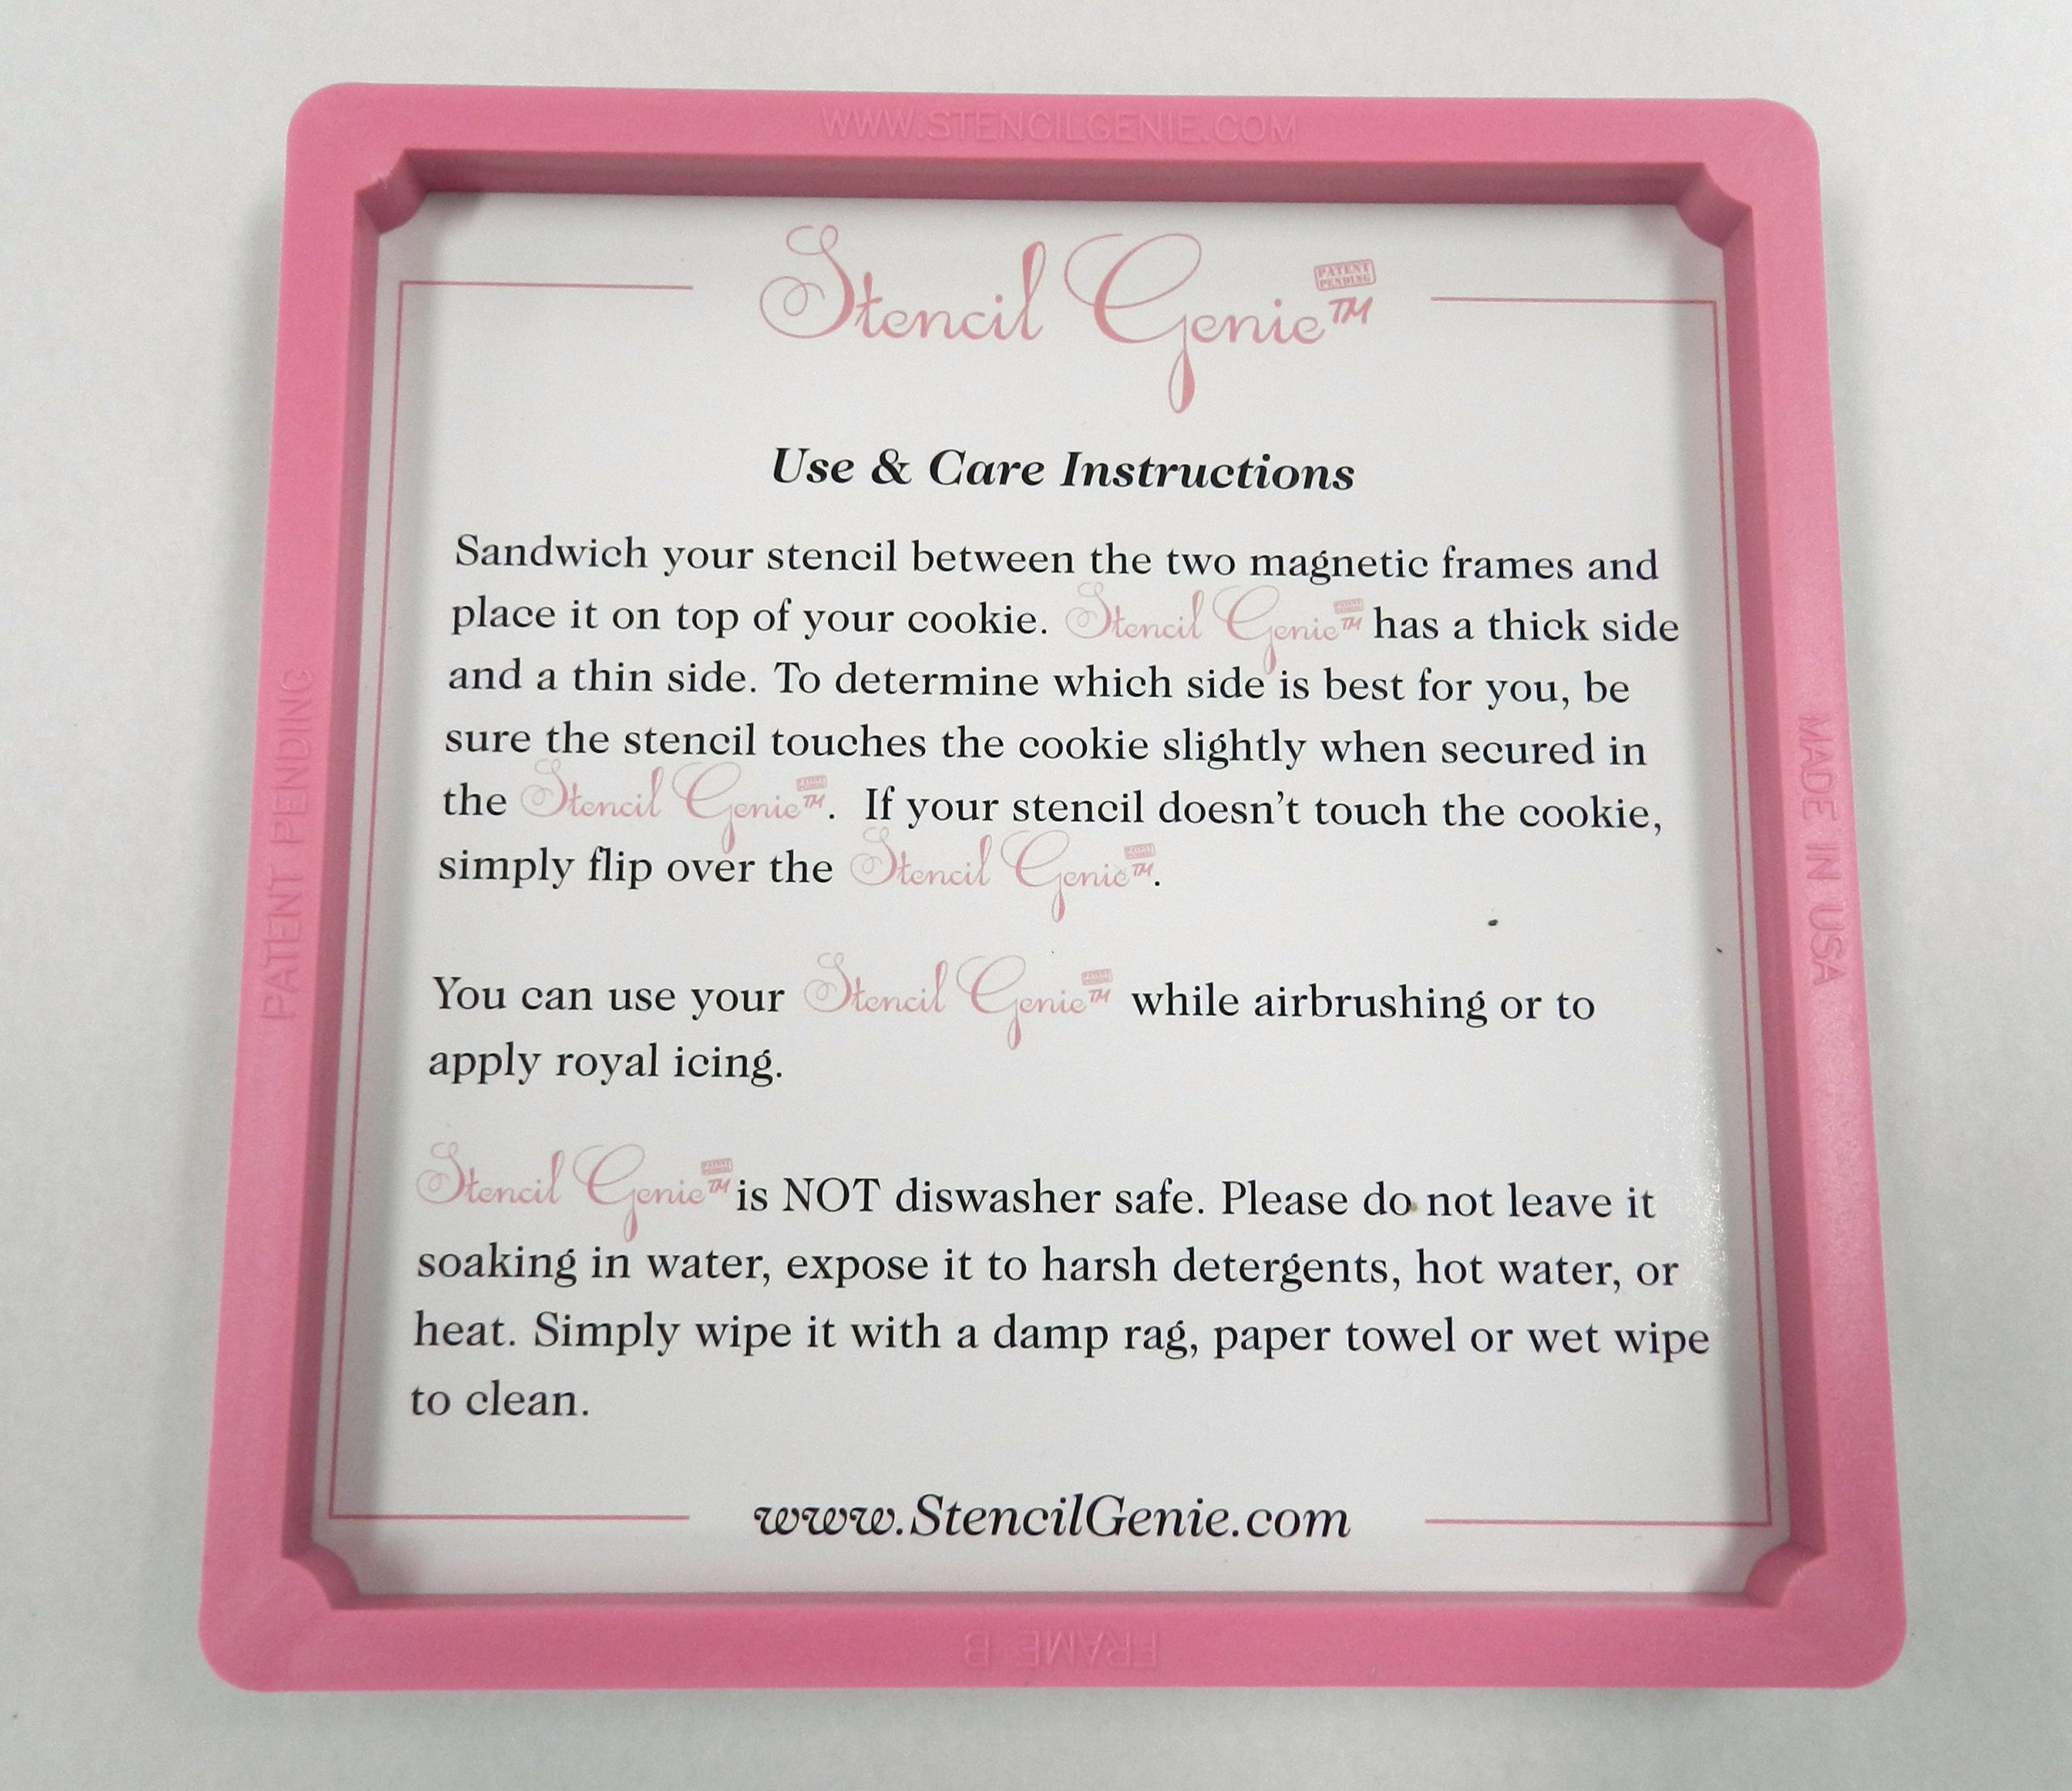 WWW.STENCILGENIE.COM
Stencil Genie™
PATENT
PENDING
Use & Care Instructions
Sandwich your stencil between the two magnetic frames and
place it on top of your cookie. Stencil Genie™ has a thick side
and a thin side. To determine which side is best for you, be
sure the stencil touches the cookie slightly when secured in
the Stencil Genie™. If your stencil doesn't touch the cookie,
simply flip over the Stencil Genie™.
You can use your Stencil Genie™ while airbrushing or to
apply royal icing.
Stencil Genie™ is NOT diswasher safe. Please do not leave it
soaking in water, expose it to harsh detergents, hot water, or
heat. Simply wipe it with a damp rag, paper towel or wet wipe
to clean.
www.StencilGenie.com
PATENT PENDING
MADE IN USA
FRAME B